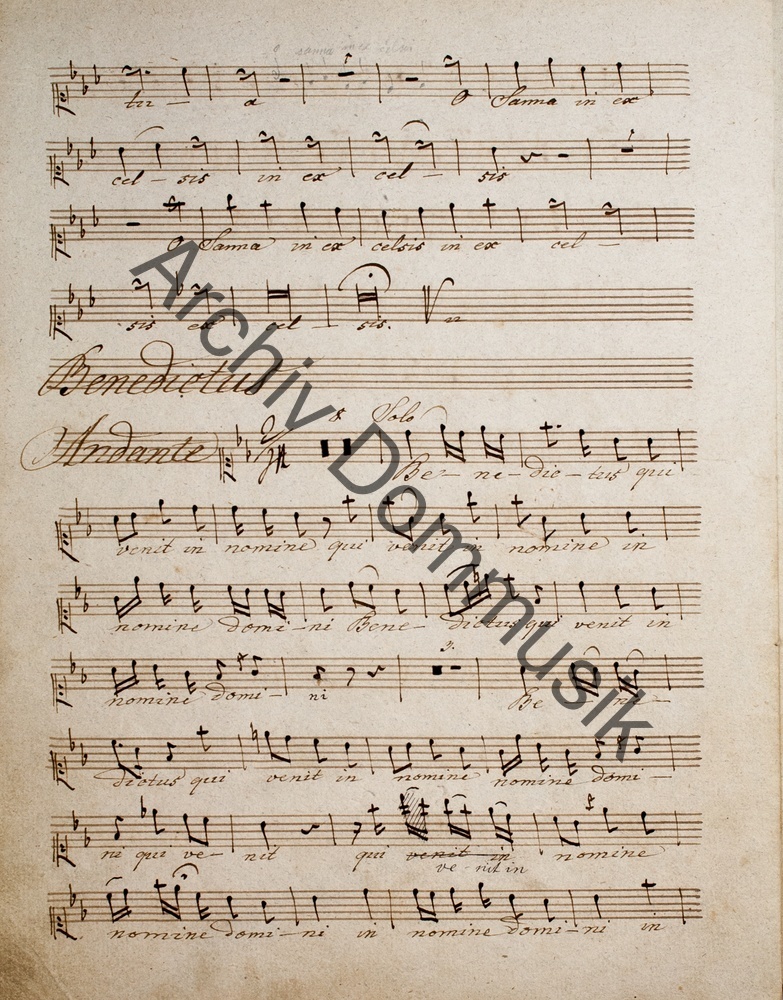 sanna in ex celsis
tu - a O Sanna in ex
cel - sis in ex cel - sis
O Sanna in ex celsis in ex cel -
sis ex cel - sis.
Benedictus
8 Solo
Andante
Be - ne - dic - tus qui
venit in nomine qui venit in nomine in
nomine domi - ni Bene - dictus qui venit in
3.
nomine domi - ni Be - ni -
dictus qui venit in nomine nomine domi -
ni qui ve - nit qui venit in nomine
ve - nit in
nomine domi - ni in nomine domi - ni in
Archiv Dommusik